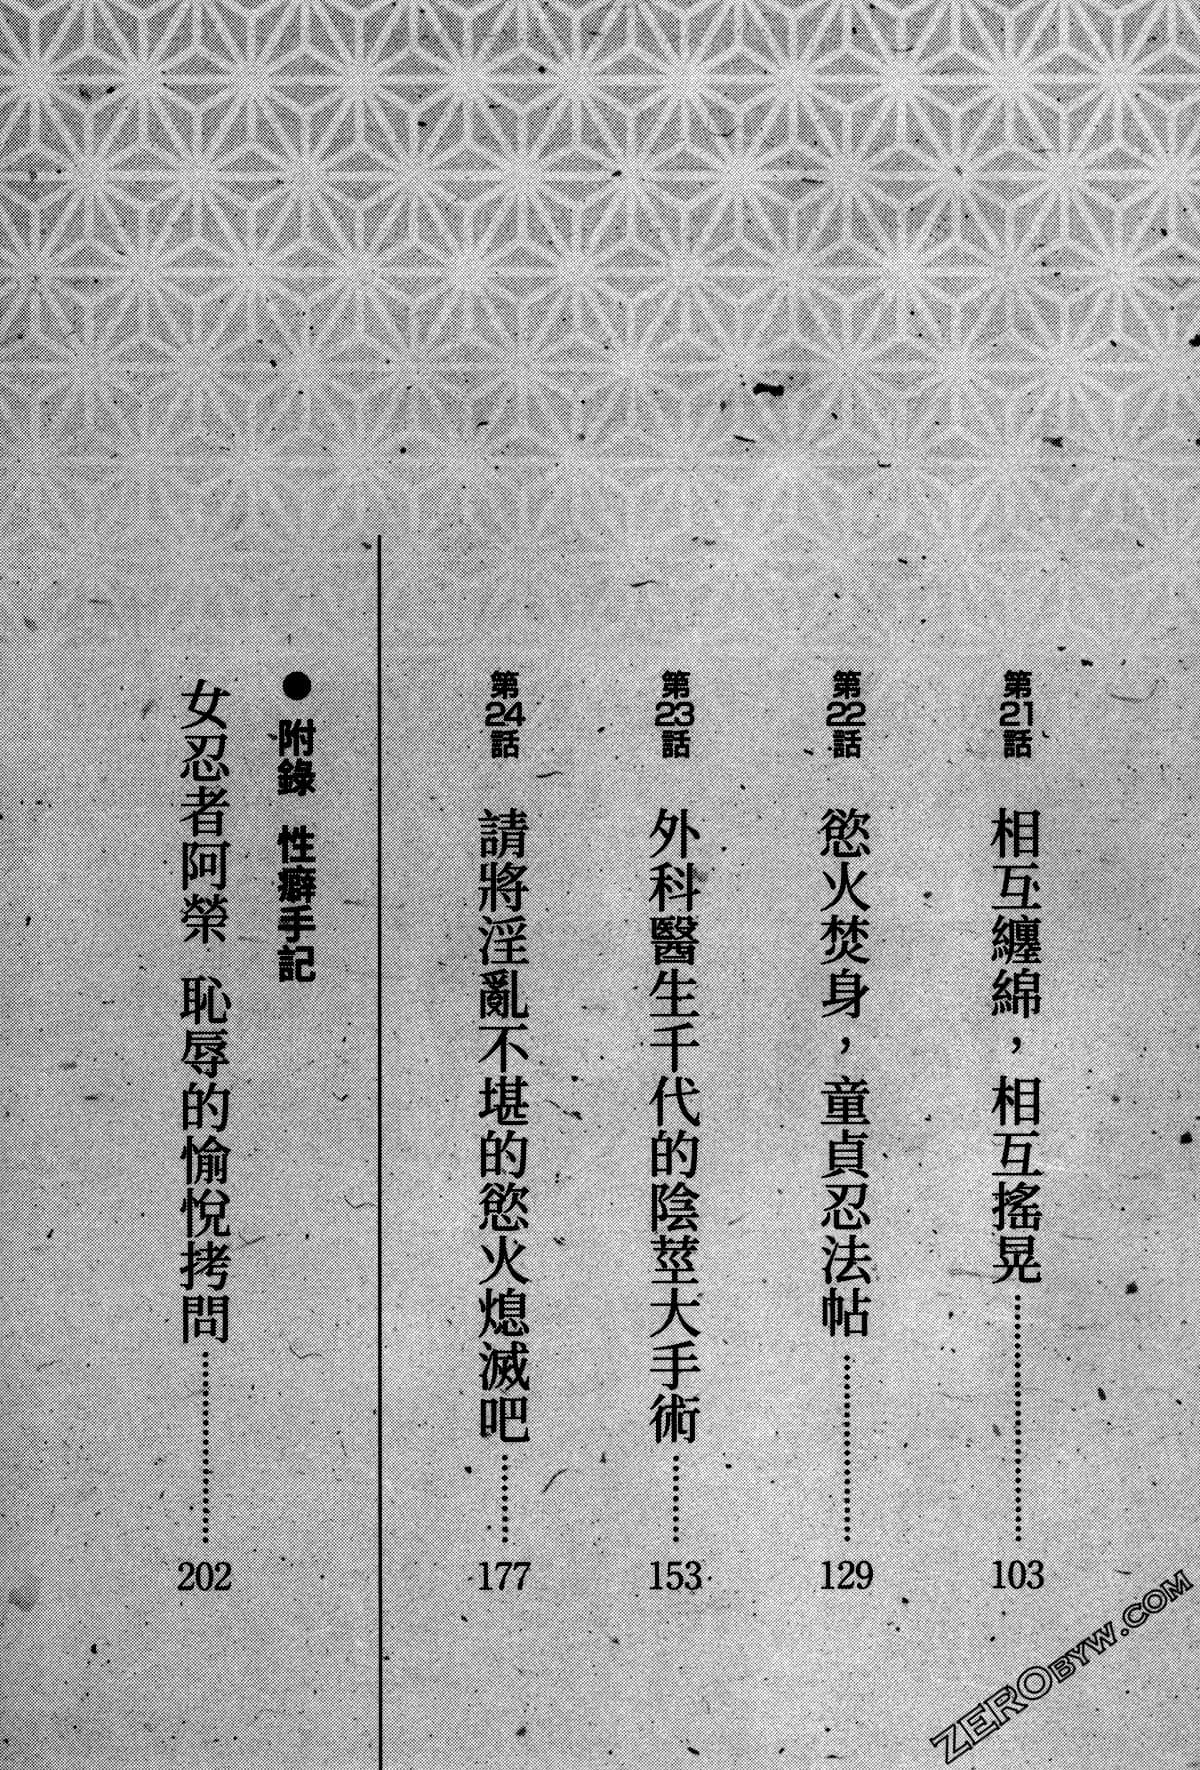 第21話 相互纏綿，相互搖晃……103
第22話 慾火焚身，童貞忍法帖……129
第23話 外科醫生千代的陰莖大手術……153
第24話 請將淫亂不堪的慾火熄滅吧……177
● 附錄 性癖手記
女忍者阿榮 恥辱的愉悅拷問……202
ZEROBYW.COM